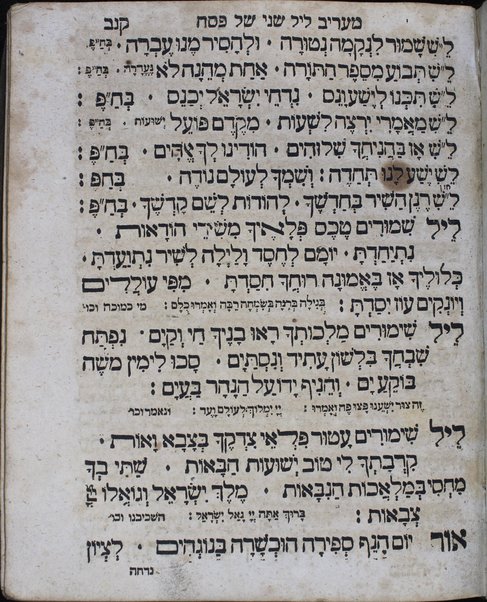 מעריב ליל שני של פסח קנב
ל״ש שמור לנקמה נטורה · ולהסיר מנו עברה · בח״פ
ל״ש תבוע מספר התורה · אחת מהנה לא נעדרה · בח״פ :
ל״ש תכנו לישעונס · נדחי ישראל יכנס · בח״פ :
ל״ש מאמרי ירצה לשעות · מקדם פועל ישועות · בח״פ :
ל״ש או בהניחך שלוהים · הודינו לך אלהים · בח״פ :
ל״ש ישע לנו תחדה : ושמך לעולם נודה · בחפ :
ל״ש רנן השיר בחדשך · להודות לשם קדשך · בח״פ :
ליל שמורים טכס פלאיך משירי הוראות ·
נתיחדת · יומם לחסד ולילה לשיר נתועדת ·
כלוליך אז באמונה רוחך חסדת · מפי עוללים
ויונקים עוז יסדת : בגילה ברנה בשמחה רבה ואמרו כלם : מי כמוכה וכו׳
ליל שימורים מלכותך ראו בניך חי וקים · נפתח
שבחך בלשון עתיד ונסתים · סכו לימין משה
בוקע ים · והניף ידו על הנהר בעים :
זה צור ישענו פצו פה ואמרו : יי ימלוך לעולם ועד : ונאמר וכו׳
ליל שימורים עטור פלאי צדקך בצבא ואות ·
קרבתך לי טוב ישועות הבאות · שתי בך
מחסי במלאכות הנבאות · מלך ישראל וגואלו יי
צבאות : ברוך אתה יי גאל ישראל : השכיבנו וכו׳
אור יום הנף ספירה הוכשרה בנוגהים · לציון
נדחה